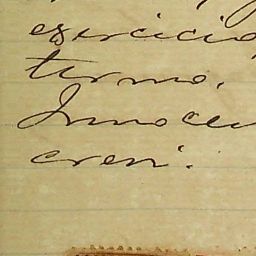 exercicio
termo.
Innocen
crevi.